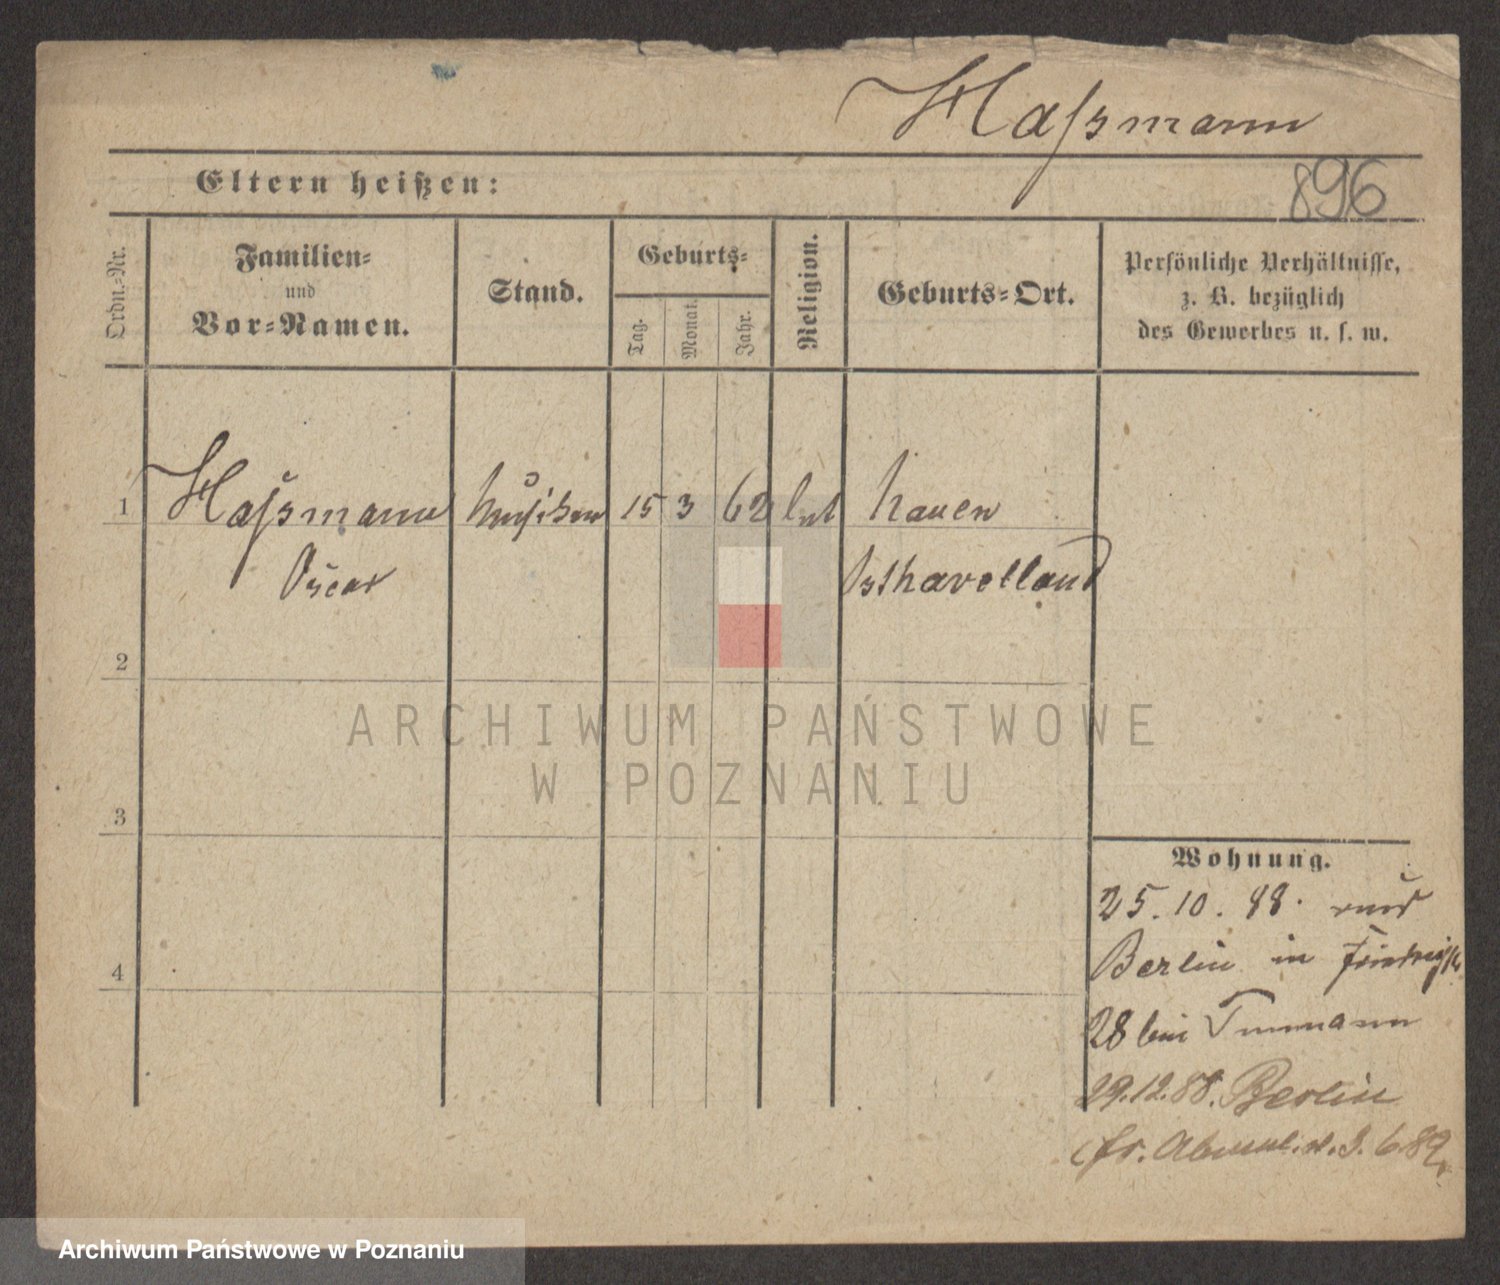 Haßmann
Eltern heißen:
896
Ordn.-Nr.
Familien-
und
Vor-Namen.
Stand.
Geburts-
Tag.
Monat.
Jahr.
Religion.
Geburts-Ort.
Persönliche Verhältnisse,
z. B. bezüglich
des Gewerbes u. s. w.
1 Haßmann 15 3 62 Nauen
Oscar Osthavelland
2
ARCHIWUM PAŃSTWOWE
W POZNANIU
3
Wohnung.
25. 10. 88.
4
Berlin in
28 bei
29.12.88. Berlin
3. 6. 89
Archiwum Państwowe w Poznaniu